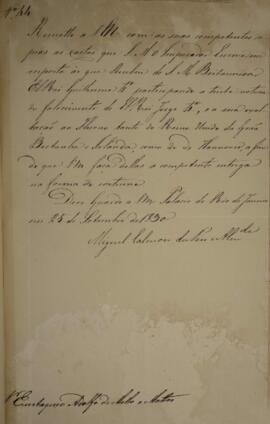 Nº 44
Remetto a VM com as suas competentes co-
pias as cartas que S. M. O Imperador Escreve em
resposta ás que recebeu de S. M. Britannica
El Rei Guilherme 4º participando a triste noticia
do fallecimento d'El Rei Jorge 4º, e a sua exal-
tação ao Throno tanto do Reino Unido da Grãa
Bretanha e Irlanda, como do de Hannover, a fim
de que VM faça dellas a competente entrega
na forma do costume.
Deos Guarde a VM. Palacio do Rio de Janeiro
em 25 de Setembro de 1830
Miguel Calmon du Pin e Almda
Sr. Eustaquio Adolfo de Mello e Mattos